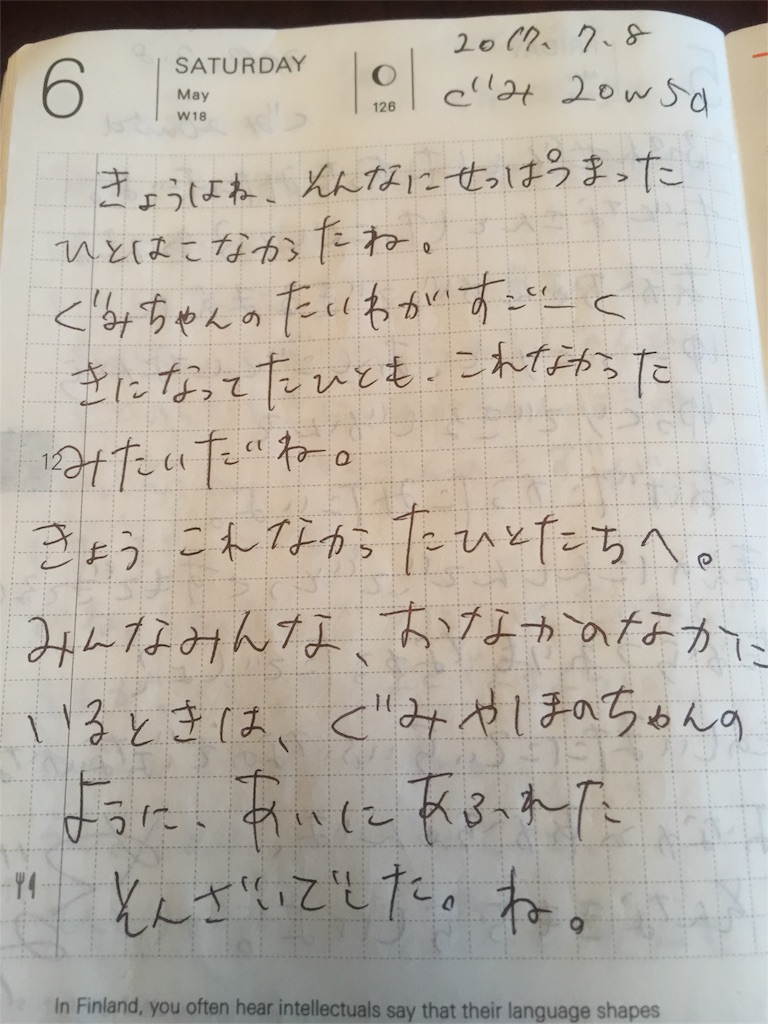 6
SATURDAY
May
W18
126
2017. 7. 8
ぐみ 20w5d
きょうはね、そんなにせっぱつまった
ひとはこなかったね。
ぐみちゃんのたいわがすごーく
きになってたひとも、これなかった
12
みたいだね。
きょう これなかったひとたちへ。
みんなみんな、おなかのなかに
いるときは、ぐみやしまのちゃんの
ように、あいにあふれた
そんざいでした。ね。
In Finland, you often hear intellectuals say that their language shapes